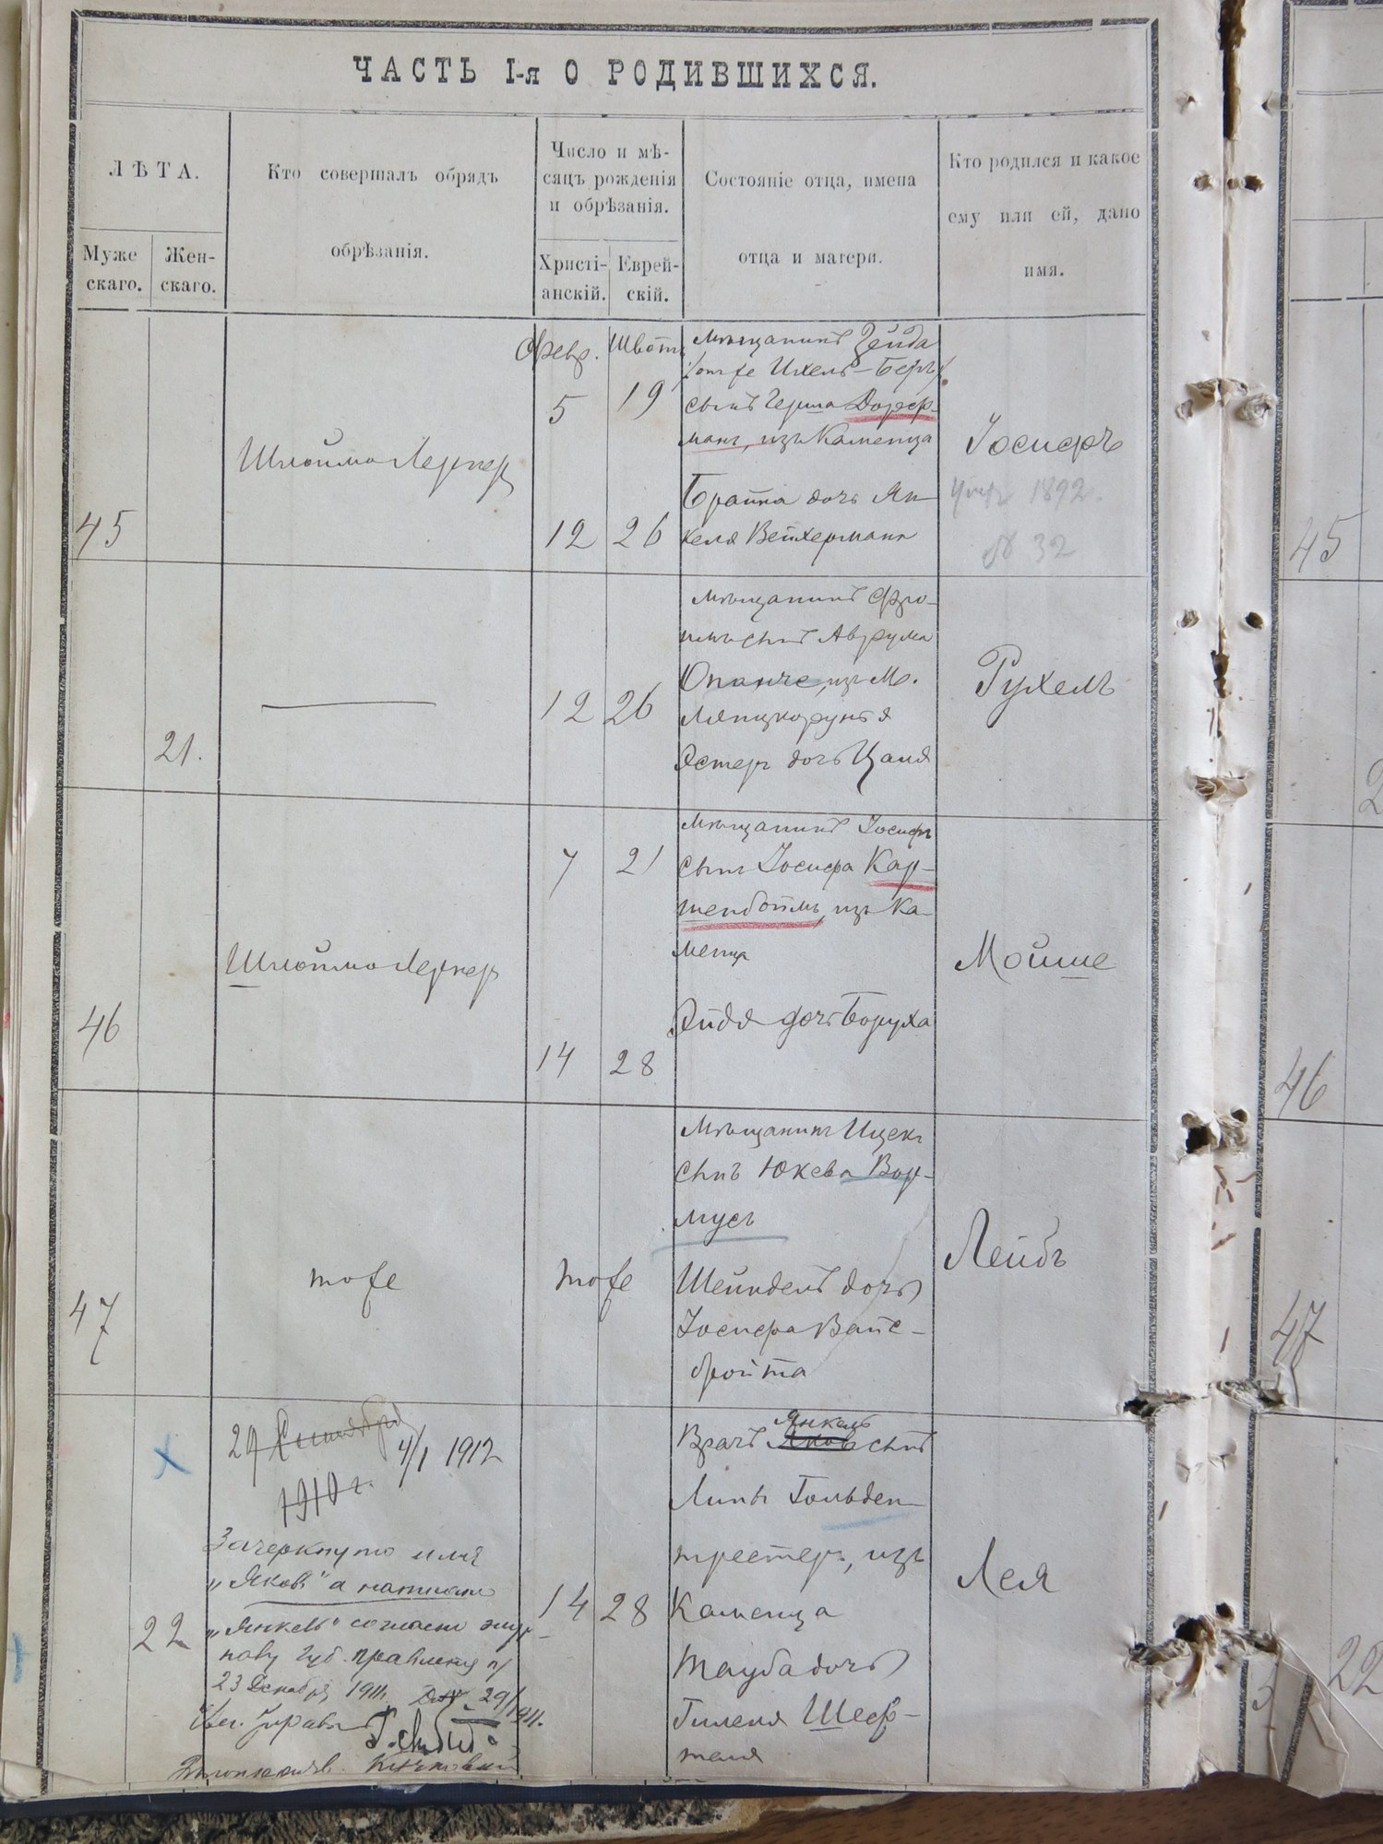 ЧАСТЬ I-я О РОДИВШИХСЯ.
ЛѢТА.
Муже
скаго.
Жен-
скаго.
Кто совершалъ обрядъ
обрѣзанія.
Число и мѣ-
сяцъ рожденія
и обрѣзанія.
Христі-
анскій.
Еврей-
скій.
Состояніе отца, имена
отца и матери.
Кто родился и какое
ему или ей, дано
имя.
45
Шлойма Лернер
Февр.
5
12
Шватъ
19
26
Мѣщанинъ Зейда
онъ же Ихель-Беръ
сынъ Герша Дорф-
манъ, изъ Каменца
Брайна дочь Ян-
келя Вейхерманъ
Іосифъ
1892.
№ 32
45
21.
12
26
Мѣщанинъ Фро-
имъ сынъ Аврума
изъ М.
Ляпцкоруня
Эстеръ дочь Цаля
Рухель
46
Шлойма Лернеръ
7
14
21
28
Мѣщанинъ Іосифъ
сынъ Іосифа Кар-
шенбоймъ, изъ Ка-
менца
Эйдя дочь Боруха
Мойше
46
47
тоже
тоже
Мѣщанинъ Ицекъ
сынъ Юкева Вар-
мусъ
Шейндель дочь
Іосифа Вайс-
бройта
Лейбъ
47
22
29 Сентября
4/I 1912
1910 г.
Зачеркнуто имя
„Яковъ" а написано
„Янкель" согласно
Губ. Правленія
23 Декабря 1911
14
28
Янкель
Врачъ Яковъ сынъ
Липы Гольден-
трестеръ, изъ
Каменца
Тауба дочь
Гилеля Шеф-
теля
Лея
22